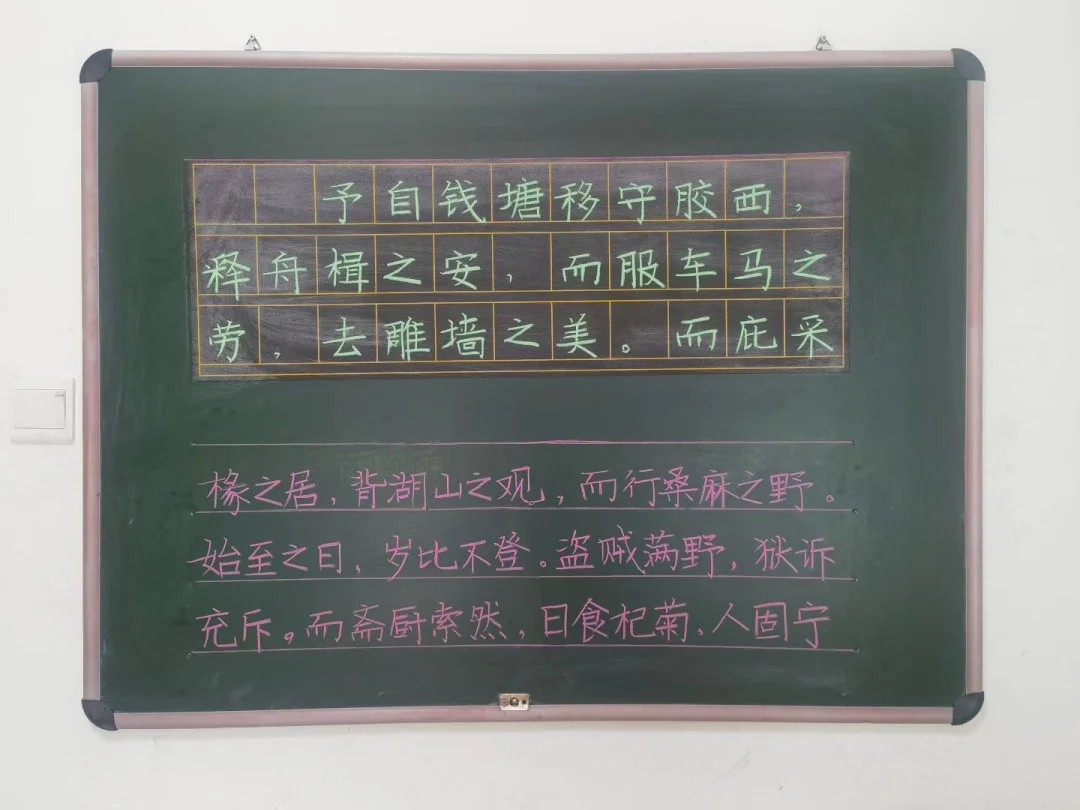 予自钱塘移守胶西，
释舟楫之安，而服车马之
劳，去雕墙之美。而庇采
椽之居，背湖山之观，而行桑麻之野。
始至之日，岁比不登。盗贼满野，狱诉
充斥。而斋厨索然，日食杞菊、人固宁